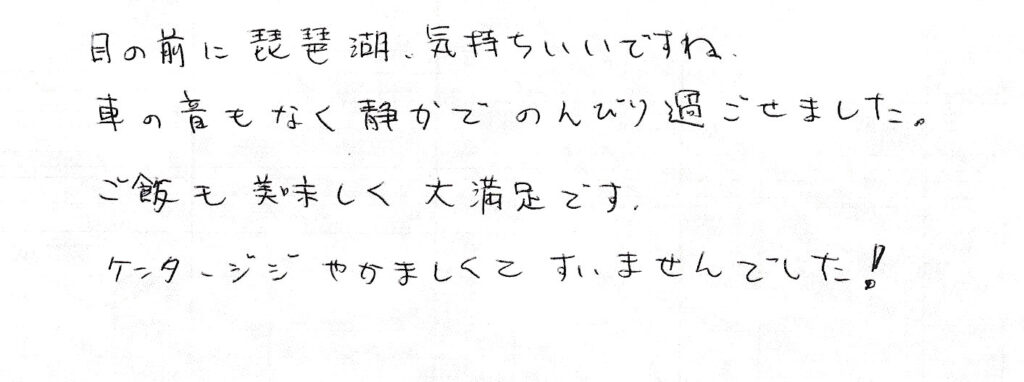 目の前に琵琶湖、気持ちいいですね、
車の音もなく静かでのんびり過ごせました。
ご飯も美味しく大満足です、
ケンタージジやかましくてすいませんでした!